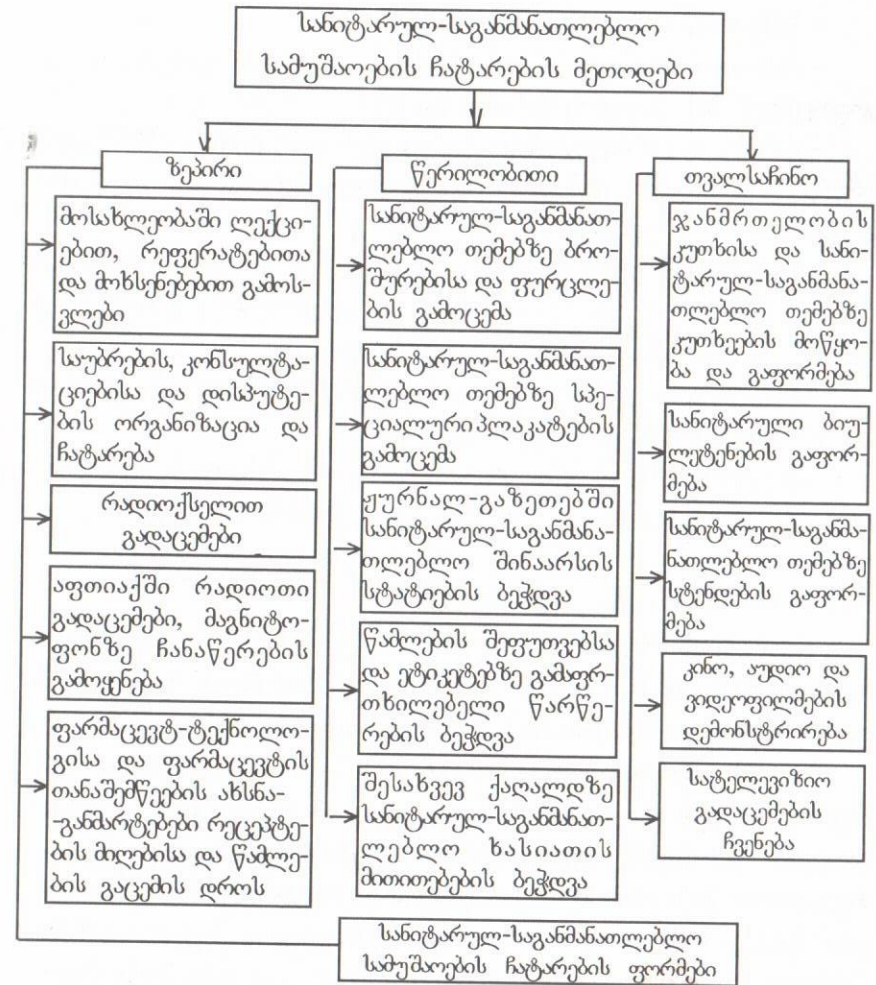 სანიტარულ-საგანმანათლებლო
სამუშაოების ჩატარების მეთოდები
ზეპირი
მოსახლეობაში ლექცი-
ებით, რეფერატებითა
და მოხსენებებით გამოს-
ვლები
საუბრების, კონსულტა-
ციებისა და დისპუტე-
ბის ორგანიზაცია და
ჩატარება
რადიოქსელით
გადაცემები
აფთიაქში რადიოთი
გადაცემები, მაგნიტო-
ფონზე ჩანაწერების
გამოყენება
ფარმაცევტ-ტექნოლო-
გისა და ფარმაცევტის
თანაშემწეების ახსნა-
-განმარტებები რეცეპტე-
ბის მიღებისა და წამლე-
ბის გაცემის დროს
წერილობითი
სანიტარულ-საგანმანათ-
ლებლო თემებზე ბრო-
შურებისა და ფურცლე-
ბის გამოცემა
სანიტარულ-საგანმანათ-
ლებლო თემებზე სპე-
ციალური პლაკატების
გამოცემა
ჟურნალ-გაზეთებში
სანიტარულ-საგანმანა-
თლებლო შინაარსის
სტატიების ბეჭდვა
წამლების შეფუთვებსა
და ეტიკეტებზე გამაფრ-
თხილებელი წარწე-
რების ბეჭდვა
შესახვევ ქაღალდზე
სანიტარულ-საგანმანათ-
ლებლო ხასიათის
მითითებების ბეჭდვა
თვალსაჩინო
ჯანმრთელობის
კუთხისა და სანი-
ტარულ-საგანმანა-
თლებლო თემებზე
კუთხეების მოწყო-
ბა და გაფორმება
სანიტარული ბიუ-
ლეტენების გაფორ-
მება
სანიტარულ-საგანმა-
ნათლებლო თემებზე
სტენდების გაფორ-
მება
კინო, აუდიო და
ვიდეოფილმების
დემონსტრირება
სატელევიზიო
გადაცემების
ჩვენება
სანიტარულ-საგანმანათლებლო
სამუშაოების ჩატარების ფორმები